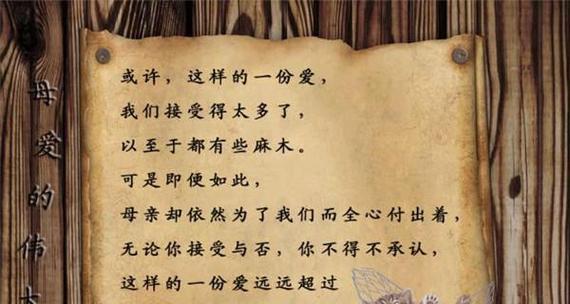 母爱的伟大
或许，这样的一份爱，
我们接受得太多了，
以至于都有些麻木。
可是即便如此，
母亲却依然为了我们而全心付出着，
无论你接受与否，你不得不承认，
这样的一份爱远远超过